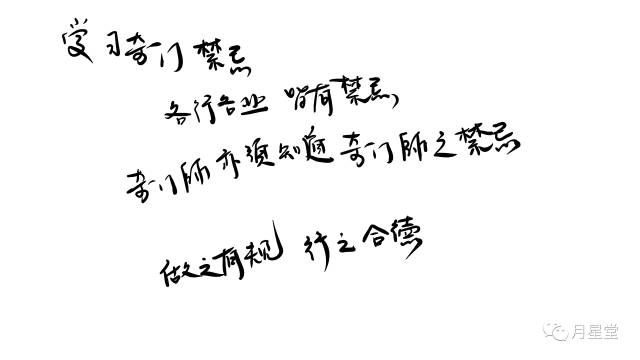 学习奇门禁忌
各行各业 皆有禁忌,
奇门師亦须知道奇门師之禁忌
做之有规 行之合德
月星堂